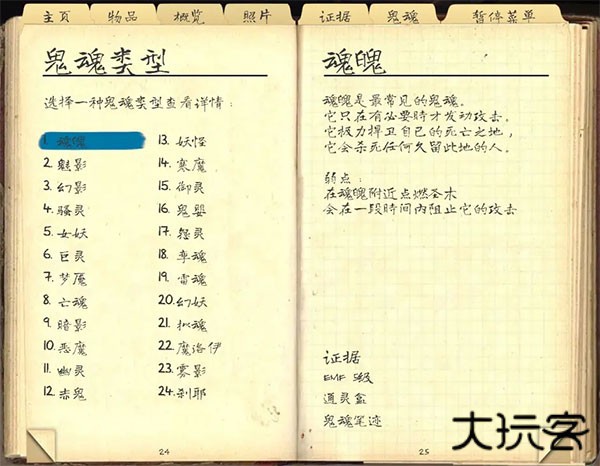 主页 物品 概览 照片 证据 鬼魂 暂停菜单
鬼魂类型
选择一种鬼魂类型查看详情：
1. 魂魄
2. 魅影
3. 幻影
4. 骚灵
5. 女妖
6. 巨灵
7. 梦魇
8. 亡魂
9. 暗影
10. 恶魔
11. 幽灵
12. 赤鬼
13. 妖怪
14. 寒魔
15. 御灵
16. 鬼婴
17. 怨灵
18. 孪魂
19. 雷魂
20. 幻妖
21. 拟魂
22. 魔洛伊
23. 雾影
24. 刹耶
24
魂魄
魂魄是最常见的鬼魂。
它只在有必要时才发动攻击。
它极力捍卫自己的死亡之地，
它会杀死任何久留此地的人。
弱点：
在魂魄附近点燃圣木
会在一段时间内阻止它的攻击
证据
EMF 5级
通灵盒
鬼魂笔迹
25
大玩客